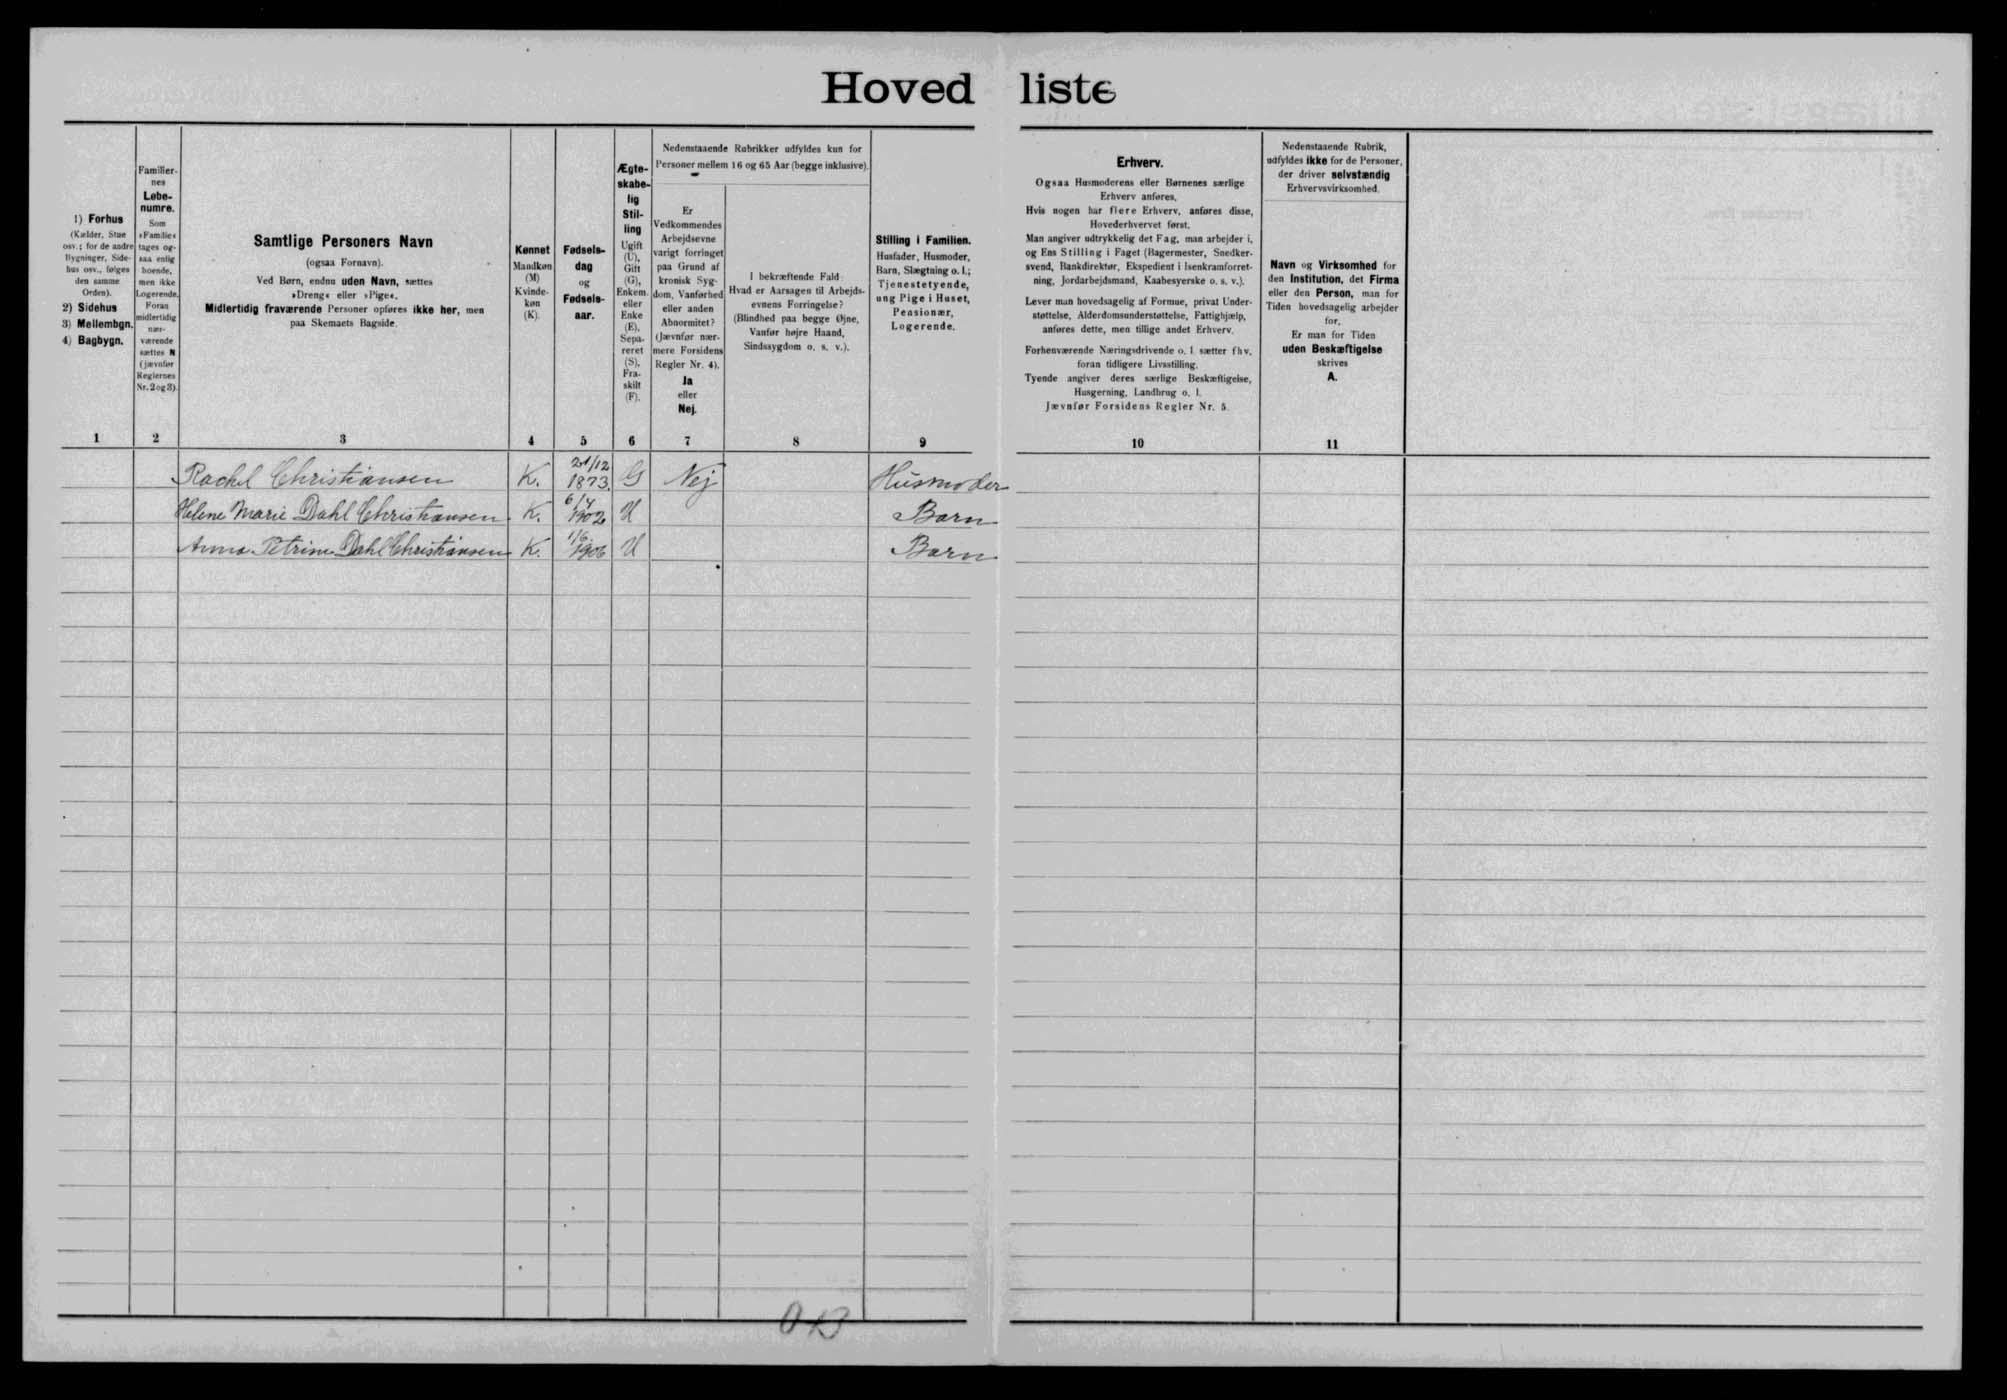 Hovedliste
1) Forhus
(Kælder, Stue
osv.; for de andre
Bygninger, Side-
hus osv., følges
den samme
Orden).
2) Sidehus
3) Mellembgn.
4) Bagbygn.
1
Familier-
nes
Løbe-
numre.
Som
»Familie«
tages og-
saa enlig
boende,
men ikke
Logerende.
Foran
midlertidig
nær-
værende
sættes N
(jævnfør
Reglernes
Nr. 2 og 3).
2
Samtlige Personers Navn
(ogsaa Fornavn).
Ved Børn, endnu uden Navn, sættes
»Dreng« eller »Pige«.
Midlertidig fraværende Personer opføres ikke her, men
paa Skemaets Bagside.
3
Kønnet
Mandkøn
(M)
Kvinde-
køn
(K).
4
Fødsels-
dag
og
Fødsels-
aar.
5
Ægte-
skabe-
lig
Stil-
ling
Ugift
(U),
Gift
(G),
Enkem.
eller
Enke
(E),
Sepa-
reret
(S),
Fra-
skilt
(F).
6
Nedenstaaende Rubrikker udfyldes kun for
Personer mellem 16 og 65 Aar (begge inklusive).
Er
Vedkommendes
Arbejdsevne
varigt forringet
paa Grund af
kronisk Syg-
dom, Vanførhed
eller anden
Abnormitet?
(Jævnfør nær-
mere Forsidens
Regler Nr. 4).
Ja
eller
Nej.
7
I bekræftende Fald:
Hvad er Aarsagen til Arbejds-
evnens Forringelse?
(Blindhed paa begge Øjne,
Vanfør højre Haand,
Sindssygdom o. s. v.).
8
Stilling i Familien.
Husfader, Husmoder,
Barn, Slægtning o. l.;
Tjenestetyende,
ung Pige i Huset,
Pensionær,
Logerende.
9
Erhverv.
Ogsaa Husmoderens eller Børnenes særlige
Erhverv anføres,
Hvis nogen har flere Erhverv, anføres disse,
Hovederhvervet først.
Man angiver udtrykkelig det Fag, man arbejder i,
og Ens Stilling i Faget (Bagermester, Snedker-
svend, Bankdirektør, Ekspedient i Isenkramforret-
ning, Jordarbejdsmand, Kaabesyerske o. s. v.).
Lever man hovedsagelig af Formue, privat Under-
støttelse, Alderdomsunderstøttelse, Fattighjælp,
anføres dette, men tillige andet Erhverv.
Forhenværende Næringsdrivende o. l. sætter fhv.
foran tidligere Livsstilling.
Tyende angiver deres særlige Beskæftigelse,
Husgerning, Landbrug o. l.
Jævnfør Forsidens Regler Nr. 5.
10
Nedenstaaende Rubrik,
udfyldes ikke for de Personer,
der driver selvstændig
Erhvervsvirksomhed.
Navn og Virksomhed for
den Institution, det Firma
eller den Person, man for
Tiden hovedsagelig arbejder
for,
Er man for Tiden
uden Beskæftigelse
skrives
A.
11
Rachel Christiansen K. 21/12 1873. G Nej Husmoder
Helene Marie Dahl Christiansen K. 6/4 1902 U Barn
Anna Petrine Dahl Christiansen K. 1/6 1906 U Barn
0+3